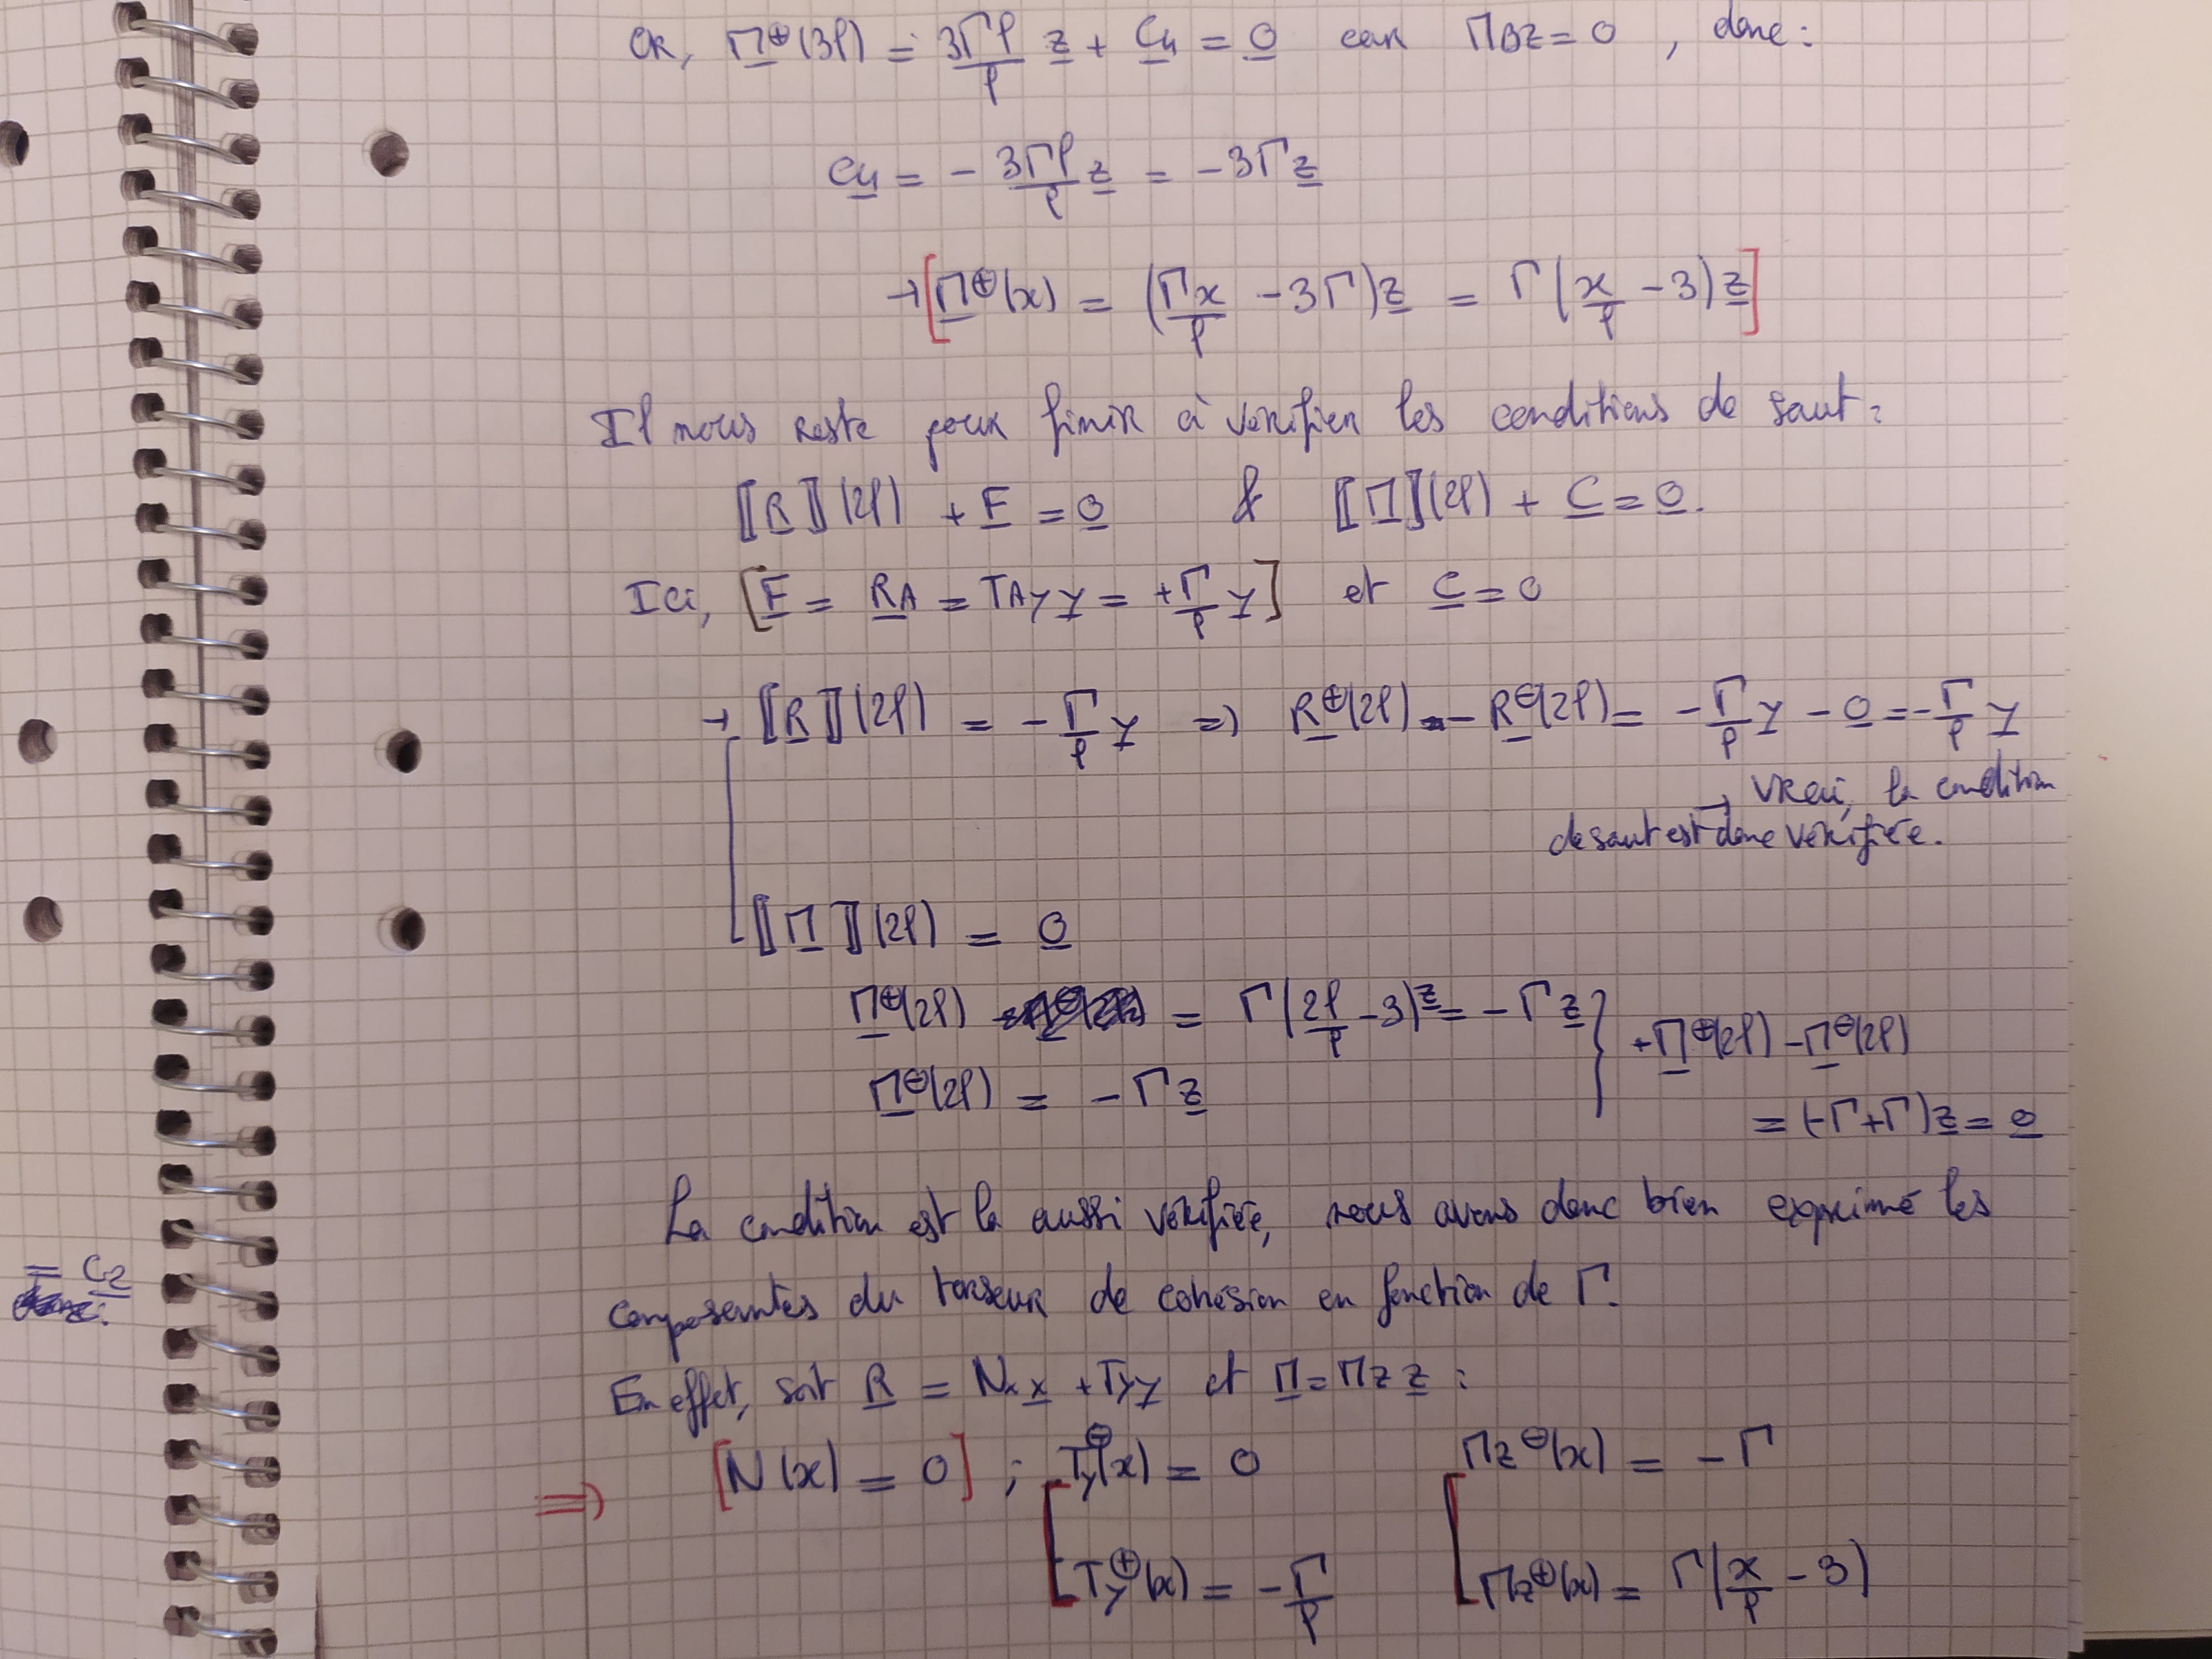 OR, Π⊕(3l) = 3Γl/l z + C4 = 0 car ΠBZ = 0 , donc :
C4 = - 3Γl/l z = -3Γz
→ [Π⊕(x) = (Γx/l - 3Γ)z = Γ(x/l - 3)z]
Il nous reste pour finir à vérifier les conditions de saut :
⟦R⟧(2l) + F = 0 & ⟦Π⟧(2l) + C = 0.
Ici, [F = RA = TAy y = +Γ/l y] et C = 0
→ ⟦R⟧(2l) = - Γ/l y => R⊕(2l) - R⊖(2l) = - Γ/l y - 0 = - Γ/l y
→ Vrai, la condition
de saut est donc vérifiée.
⟦Π⟧(2l) = 0
Π⊕(2l) = Γ(2l/l - 3)z = - Γz } +Π⊕(2l) - Π⊖(2l)
Π⊖(2l) = - Γz
= (-Γ+Γ)z = 0
La condition est là aussi vérifiée, nous avons donc bien exprimé les
= C2
composantes du torseur de cohésion en fonction de Γ.
En effet, soit R = Nx x + Ty y et Π = Πz z :
=> [N(x) = 0] ; Ty⊖(x) = 0 Πz⊖(x) = - Γ
Ty⊕(x) = - Γ/l Πz⊕(x) = Γ(x/l - 3)